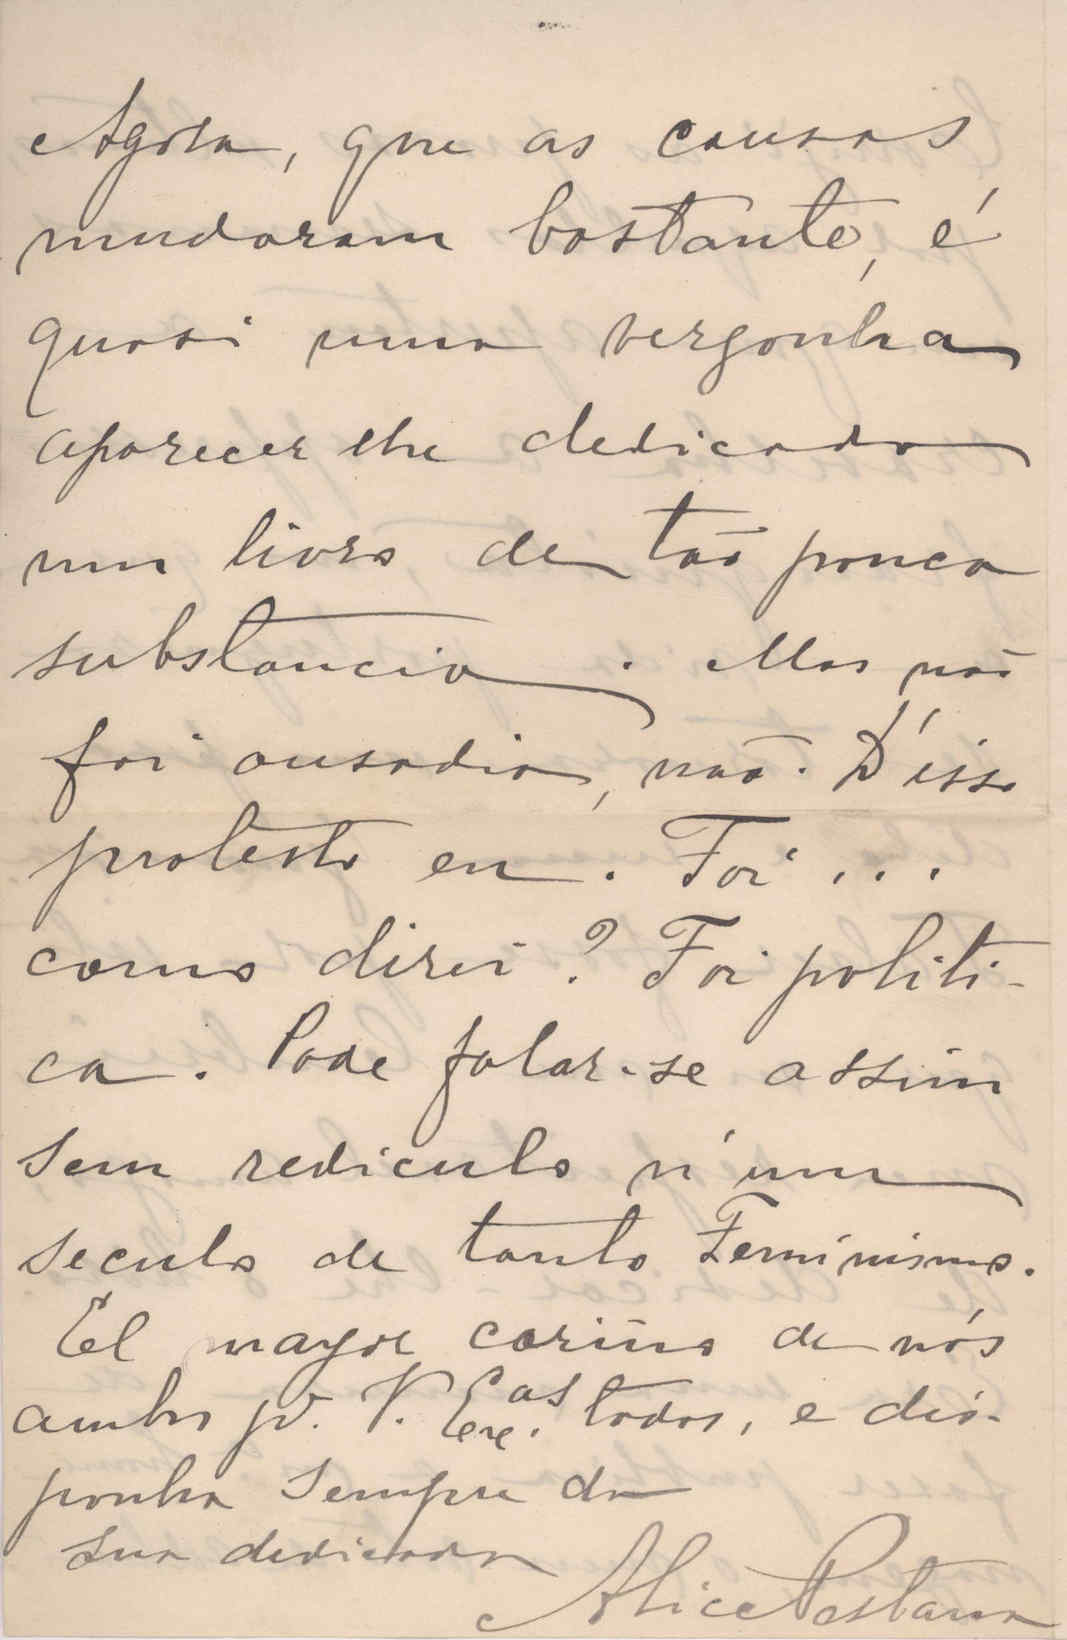 Agora, que as cousas
mudaram bastante, é
quasi uma vergonha
aparecer lhe dedicado
um livro de tão pouca
substancia. Mas não
foi ousadia, não. D'isso
protesto eu. Foi...
como direi? Foi politi-
ca. Pode falar-se assim
sem rediculo n'um
seculo de tanto Feminismo.
El mayor cariño de nós
ambos pª. V. Exc.as todos, e dis-
ponha sempre da
sua dedicada
Alice Pestana